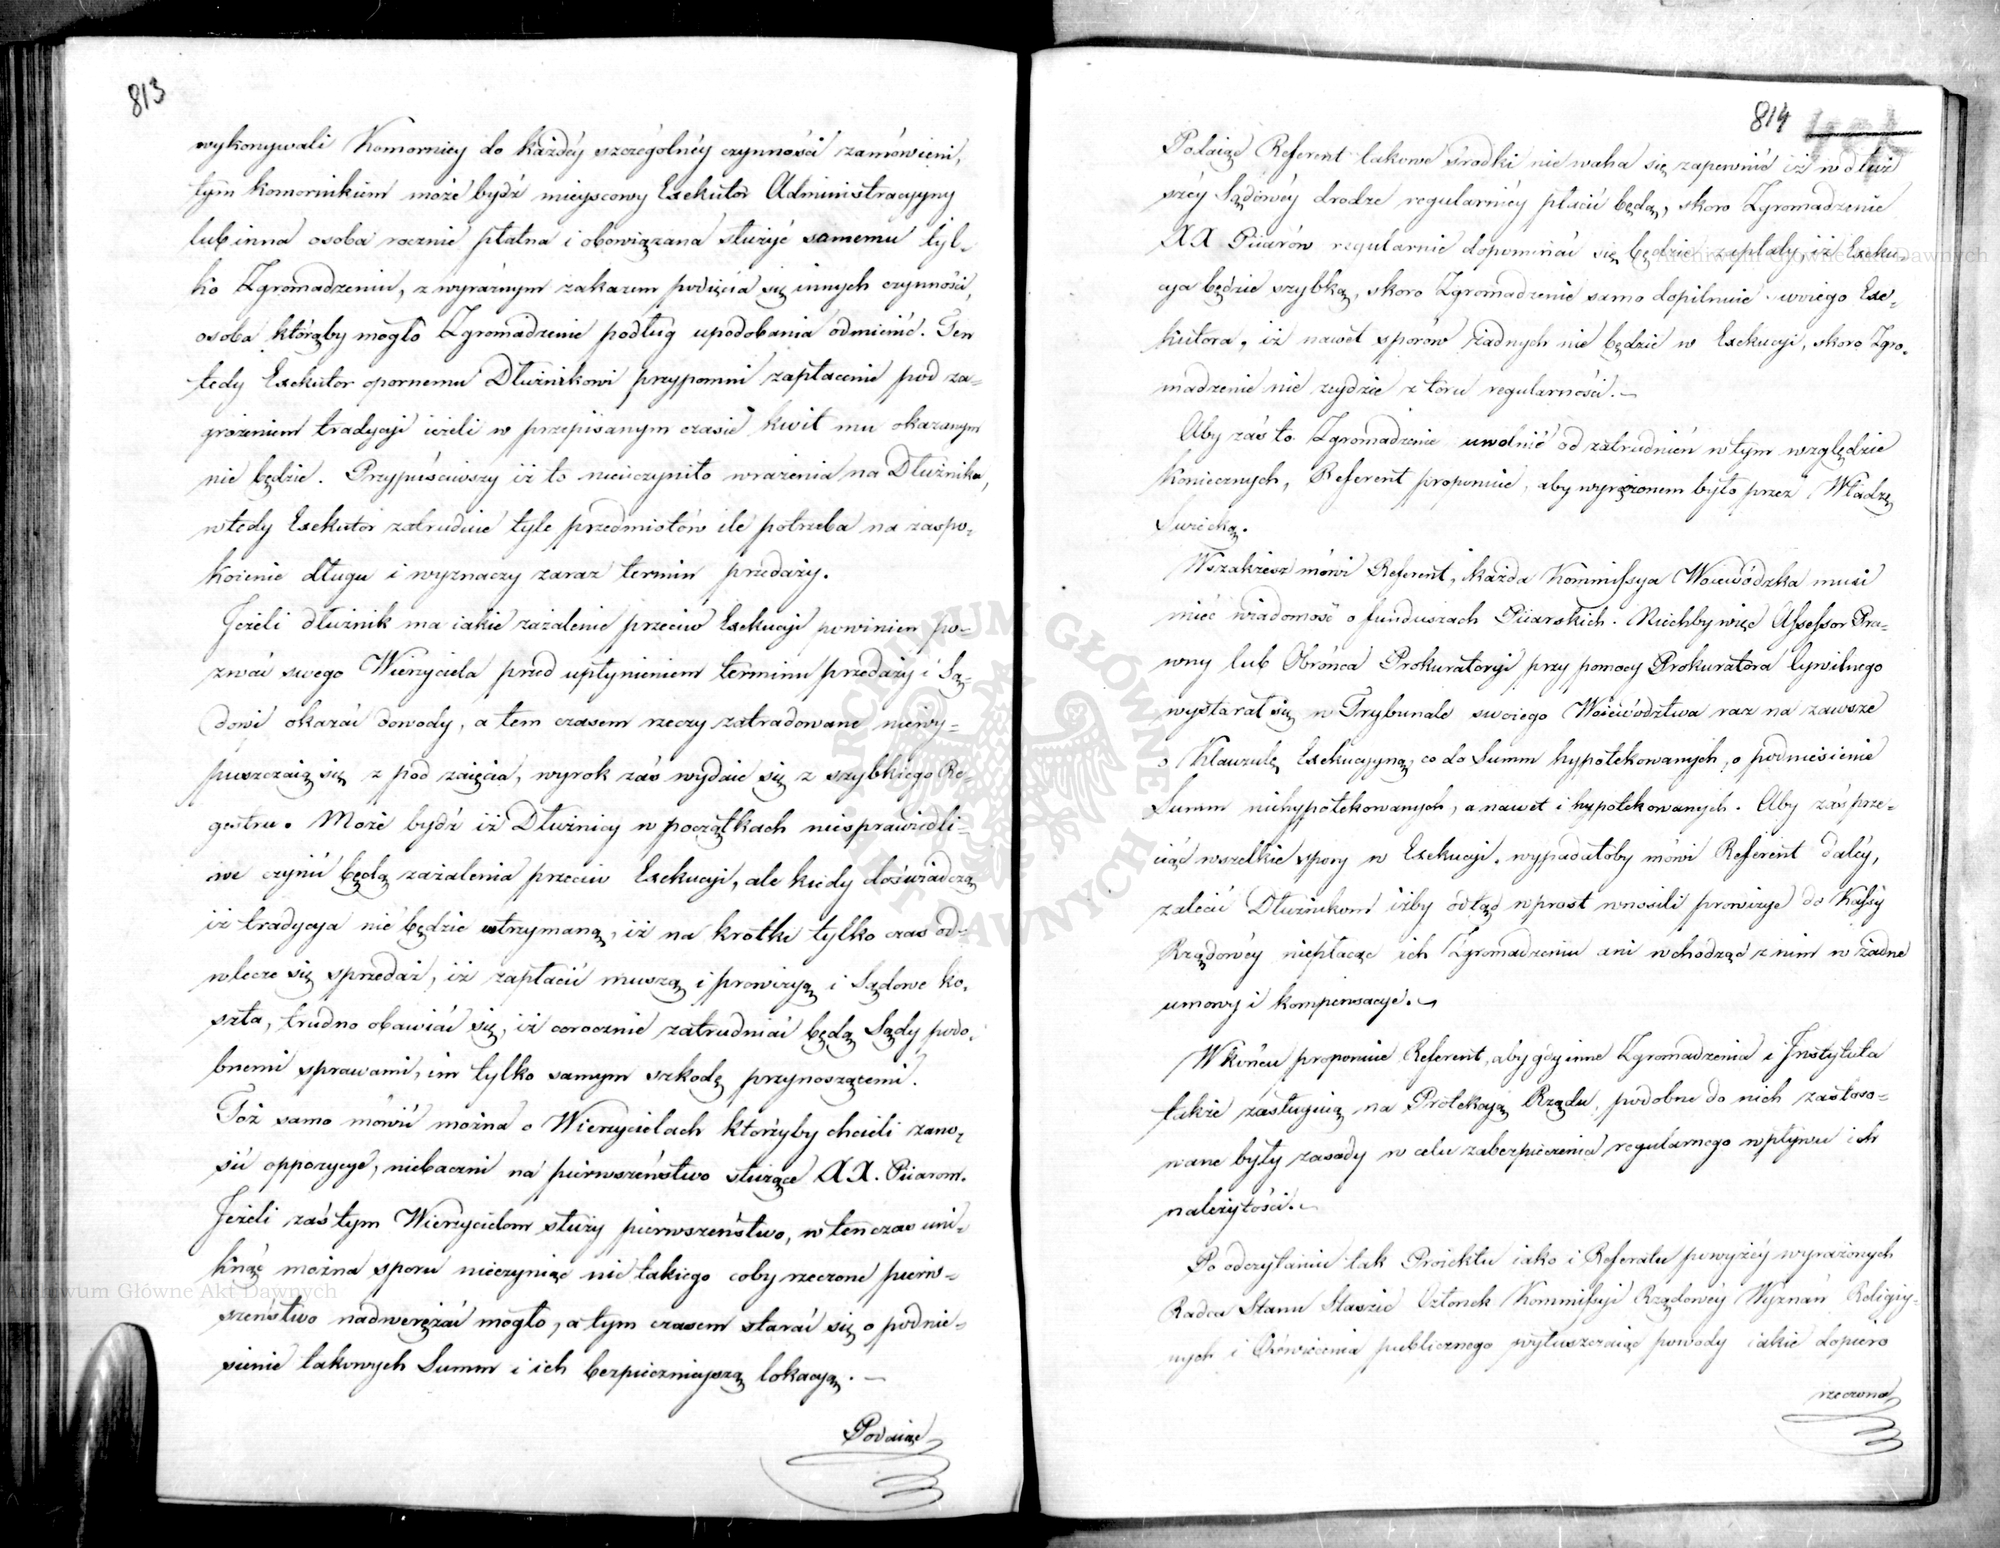 813
wykonywali Komornicy do każdéy szczególnéy czynności zamówieni,
tym komornikiem może bydź mieyscowy Exekutor Administracyyny
lub inna osoba rocznie płatna i obowiązana służyć samemu tyl-
ko Zgromadzeniu, z wyraźnym zakazem podięcia się innych czynności,
osoba którąby mogło Zgromadzenie podług upodobania odmienić. Ten
tedy Exekutor opornemu Dłużnikowi przypomni zapłacenie pod za-
grożeniem tradycyi ieżeli w przepisanym czasie kwit mu okazanym
nie będzie. Przypuściwszy iż to nieuczyniło wrażenia na Dłużniku,
wtedy Exekutor zatraduie tyle przedmiotów ile potrzeba na zaspo-
koienie długu i wyznaczy zaraz termin przedaży.
Jeżeli dłużnik ma iakie zażalenie przeciw Exekucyi powinien po-
zwać swego Wierzyciela przed upłynieniem terminu przedaży i Są-
dowi okazać dowody, a tem czasem rzeczy zatradowane niewy-
puszczaią się z pod zaięcia, wyrok zaś wydaie się z szybkiego Re-
gestru. Może bydź iż Dłużnicy w początkach niesprawiedli-
we czynić będą zażalenia przeciw Exekucyi, ale kiedy doświadczą
iż tradycya nie będzie wstrzymaną, iż na krótki tylko czas od-
wlecze się sprzedaż, iż zapłacić muszą i prowizyą i Sądowe ko-
szta, trudno obawiać się, iż corocznie zatrudniać będą Sądy podo-
bnemi sprawami, im tylko samym szkodę przynoszącemi.
Toż samo mówić można o Wierzycielach którzyby chcieli zano-
sić oppozycye, niebaczni na pierwszeństwo służące XX. Piiarom.
Jeżeli zaś tym Wierzycielom służy pierwszeństwo, wtenczas uni-
knąć można sporu nieczyniąc nic takiego coby rzeczone pierw-
szeństwo nadwerężać mogło, a tym czasem starać się o podnie-
sienie takowych Summ i ich bezpiecznieyszą lokacyą. —
Podaiąc
814
Podaiąc Referent takowe środki nie waha się zapewnić iż w dłuż
széy Sądowéy drodze regularniéy płacić będą, skoro Zgromadzenie
XX Piiarów regularnie dopominać się będzie zapłaty, iż Exeku-
cya będzie szybką, skoro Zgromadzenie samo dopilnuie swoiego Exe-
kutora, iż nawet sporów żadnych nie będzie w Exekucyi, skoro Zgro-
madzenie nie zeydzie z toru regularności. —
Aby zaś to Zgromadzenie uwolnić od zatrudnień w tym względzie
koniecznych, Referent proponuie, aby wyręczonem było przez Władzę
Swiecką.
Wszakżesz mówi Referent, każda Kommissya Woiewódzka musi
mieć wiadomość o funduszach Piiarskich. Niechby więc Assessor Pra-
wny lub Obrońca Prokuratoryi przy pomocy Prokuratora Cywilnego
wystarał się w Trybunale swoiego Woiewództwa raz na zawsze
o Klauzulę Exekucyyną, co do Summ hypotekowanych, o podniesienie
Summ niehypotekowanych, a nawet i hypotekowanych. Aby zaś prze-
ciąć wszelkie spory w Exekucyi, wypadałoby mówi Referent daléy,
zalecić Dłużnikom iżby odtąd wprost wnosili prowizye do Kassy
Rządowéy niepłacąc ich Zgromadzeniu ani wchodząc z nim w żadne
umowy i kompensacye. —
W końcu proponuie Referent, aby gdy inne Zgromadzenia i Instytuta
także zasługuią na Protekcyą Rządu, podobne do nich zastoso-
wane były zasady w celu zabezpieczenia regularnego wpływu ich
należytości. —
Po odczytaniu tak Proiektu iako i Referatu powyżéy wyrażonych
Radca Stanu Staszic Członek Kommissyi Rządowéy Wyznań Religiy-
nych i Oświecenia publicznego wyłuszczaiąc powody iakie dopiero
rzeczona
Archiwum Główne Akt Dawnych
Archiwum Główne Akt Dawnych
ARCHIWUM GŁÓWNE AKT DAWNYCH